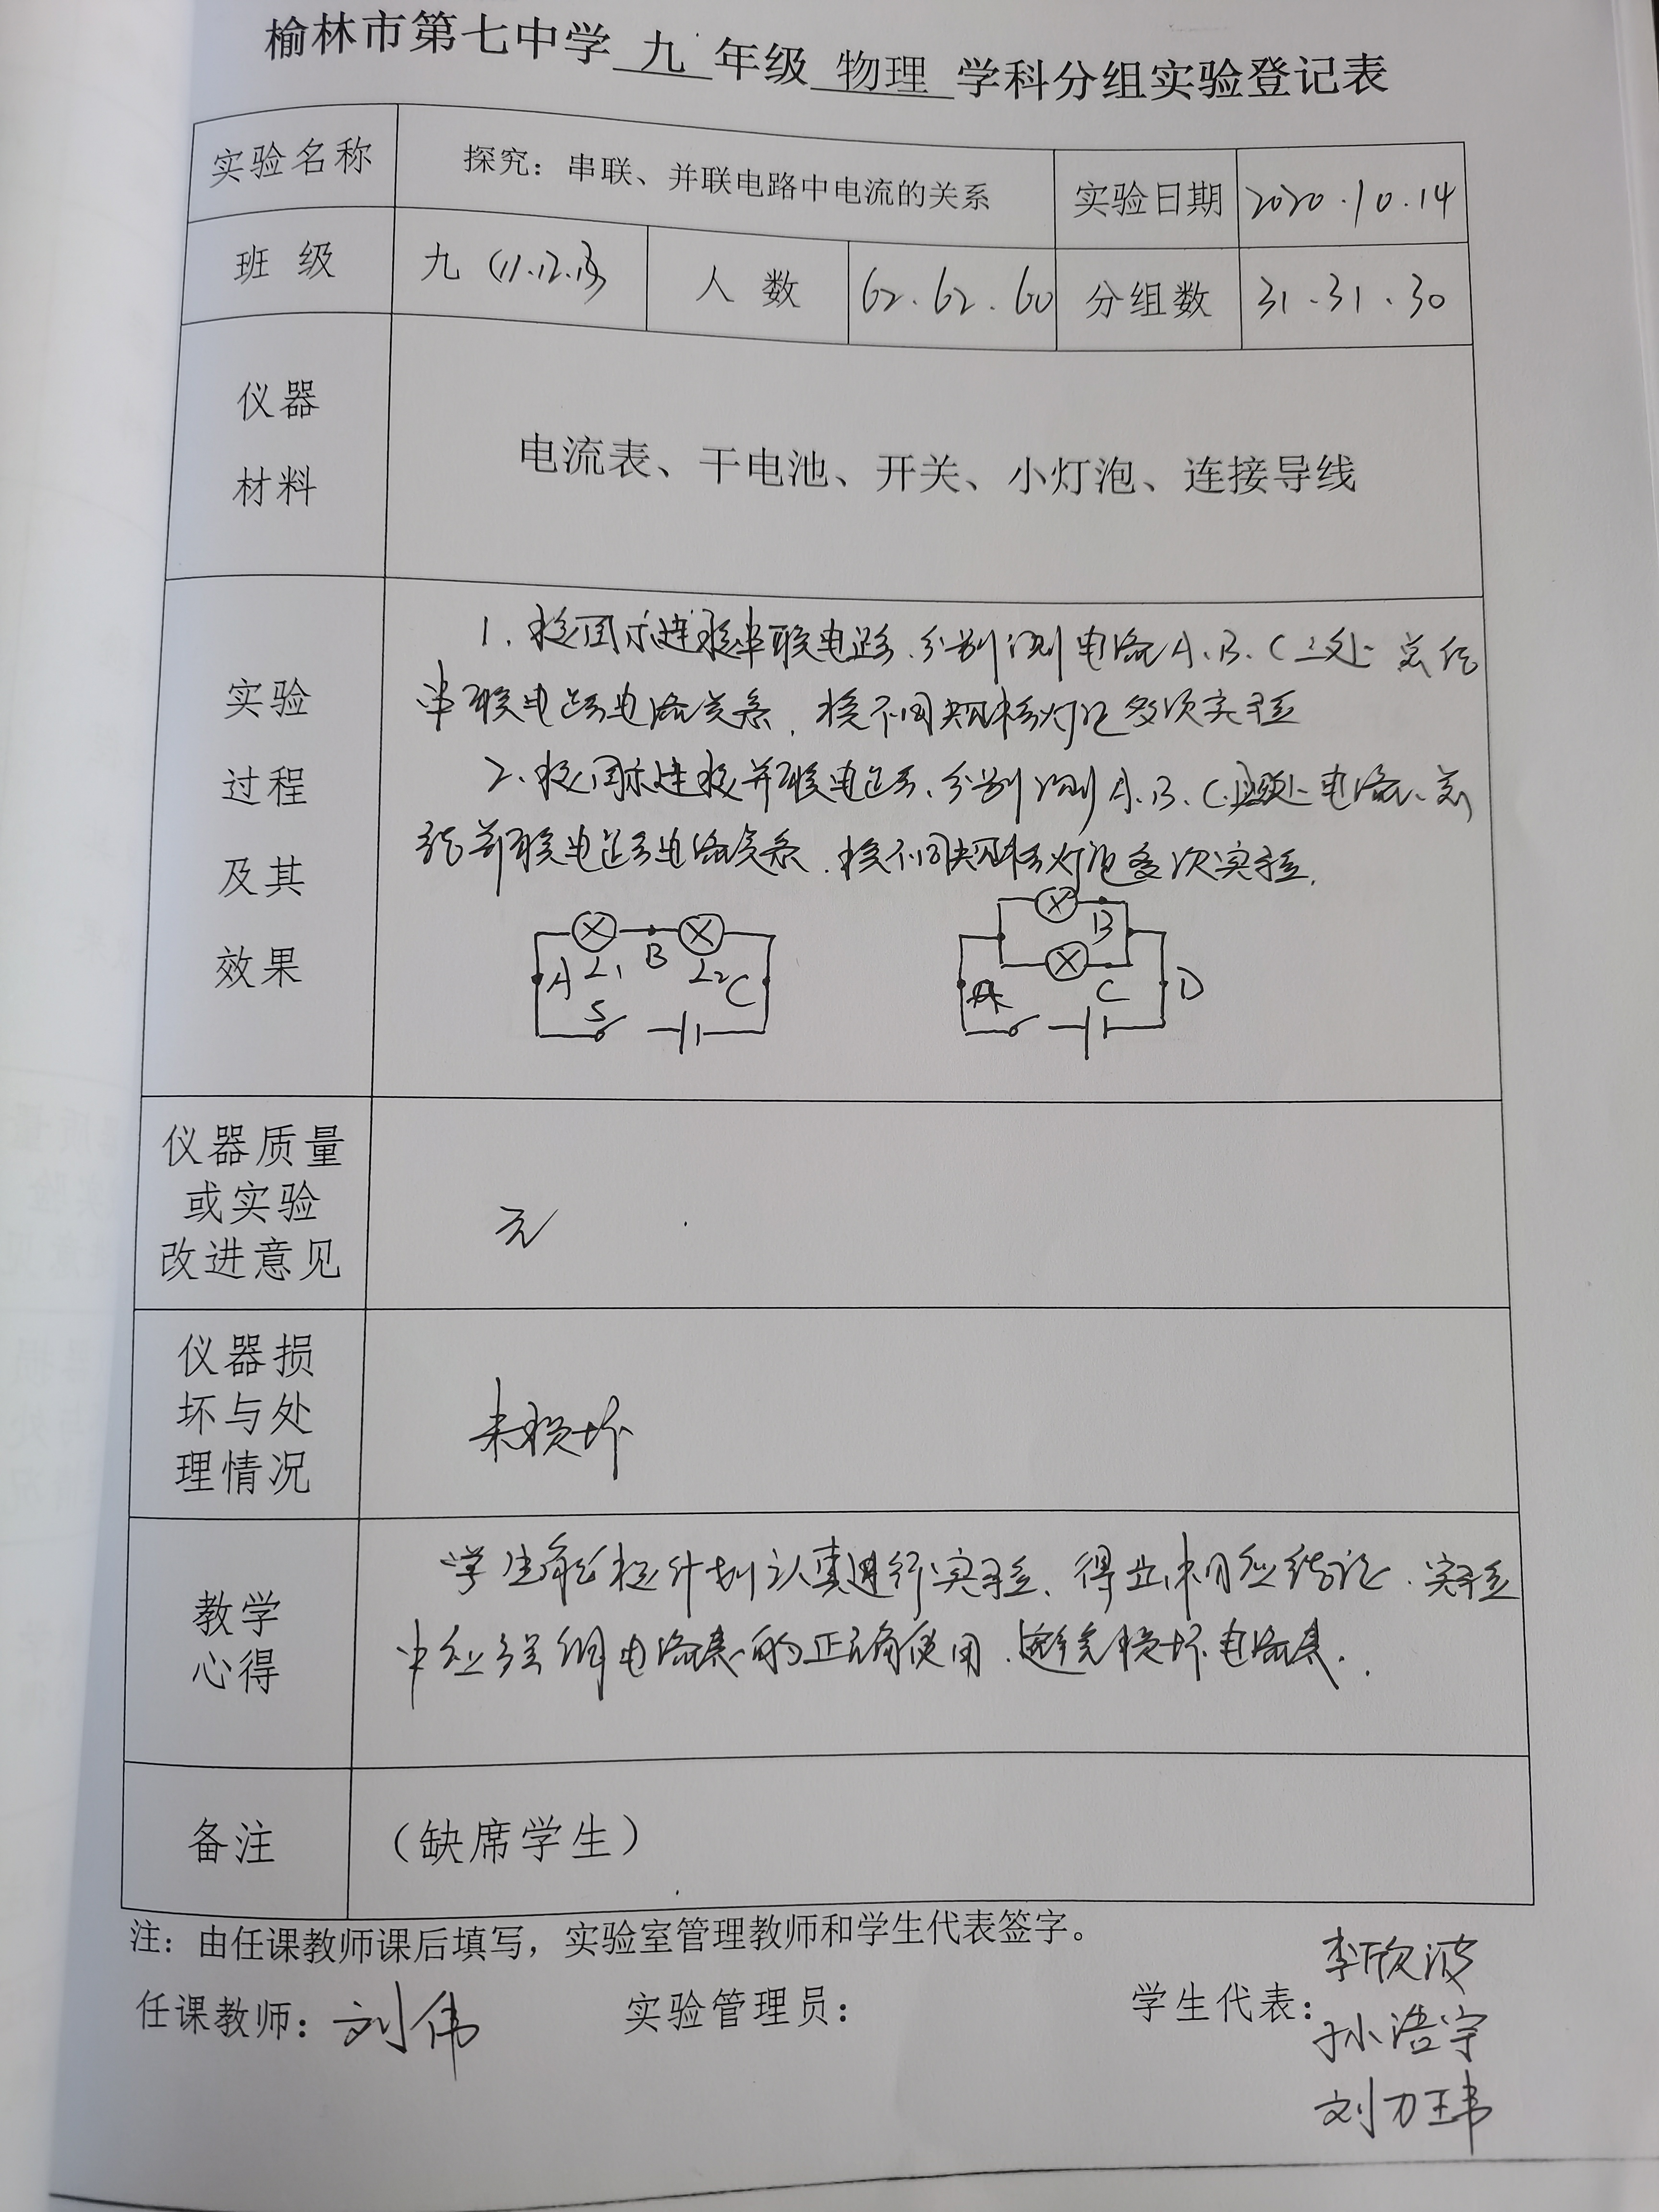 榆林市第七中学 九 年级 物理 学科分组实验登记表
实验名称 探究：串联、并联电路中电流的关系 实验日期 2020.10.14
班 级 九（11.12.13） 人 数 62.62.60 分组数 31.31.30
仪器
材料
电流表、干电池、开关、小灯泡、连接导线
实验
过程
及其
效果
1. 按图示连接串联电路.分别测电流A.B.C三处 总结
串联电路电流关系.换不同规格灯泡多次实验
2.按图示连接并联电路.分别测A.B.C处电流.总
结并联电路电流关系.换不同规格灯泡多次实验.
A L1 B L2 C
S
B
A C D
仪器质量
或实验
改进意见
无
仪器损
坏与处
理情况
未损坏
教学
心得
学生能按计划认真进行实验.得出相应结论.实验
中应强调电流表的正确使用.避免损坏电流表.
备注 （缺席学生）
注：由任课教师课后填写，实验室管理教师和学生代表签字。
任课教师：刘伟 实验管理员： 学生代表：李欣波
孙浩宇
刘力玮